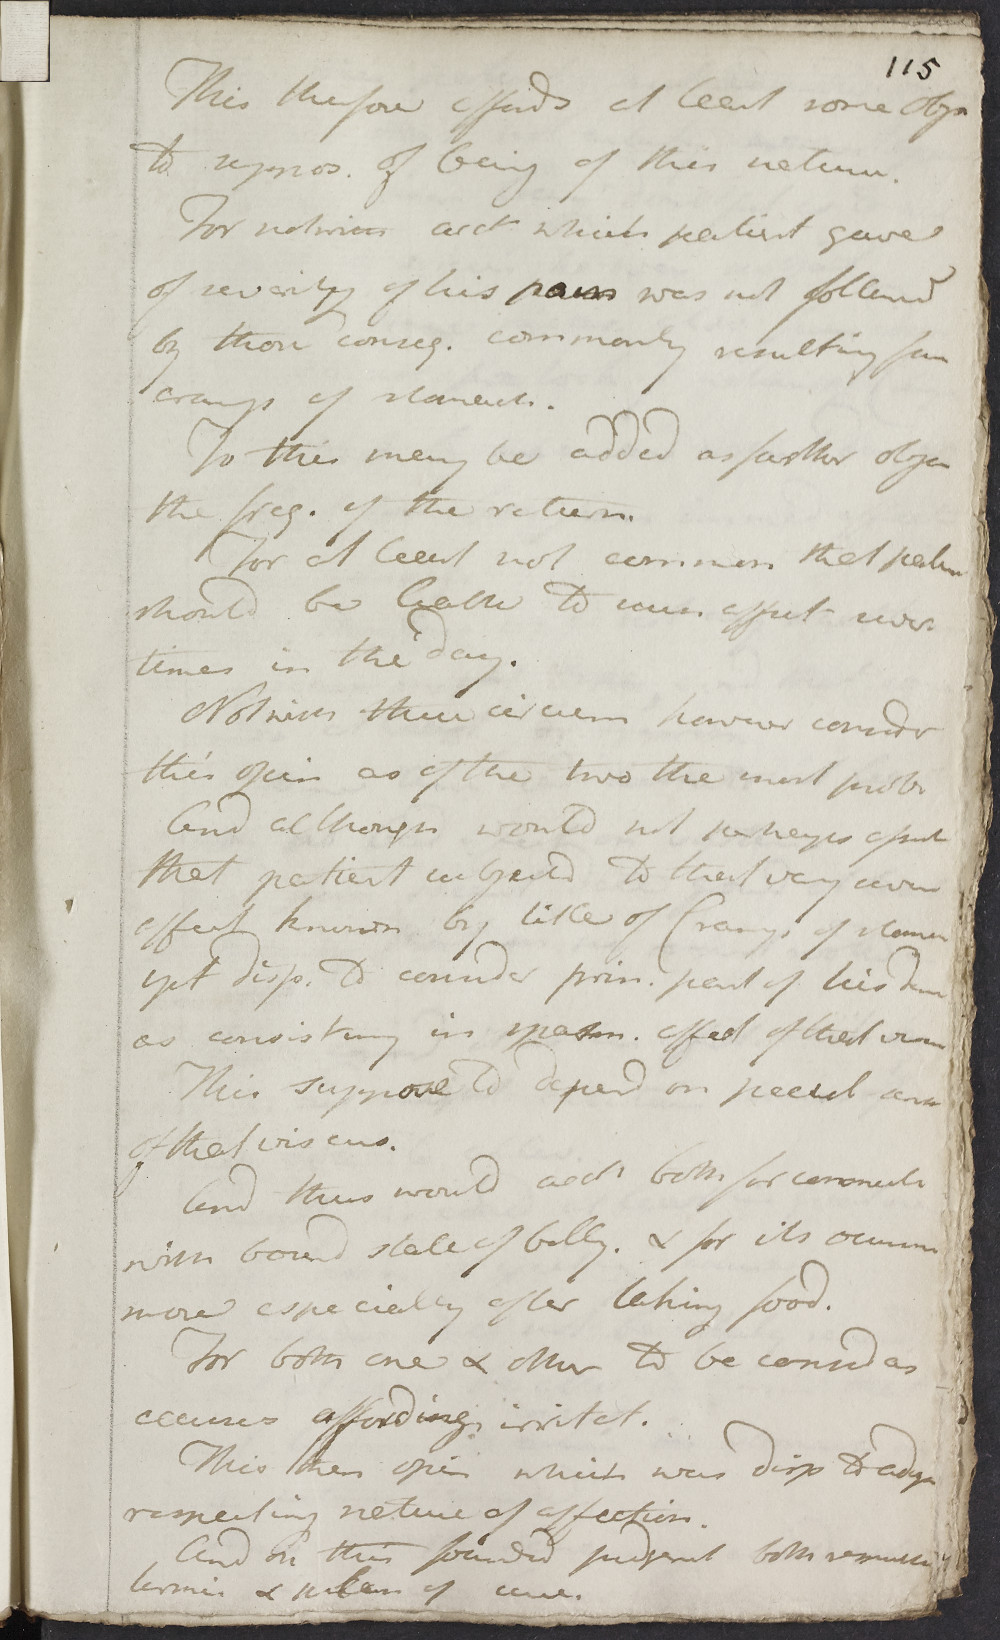 115
This therefore affords at least some obje
to suppos. of being of this nature.
For notwith acct which patient gave
of severity of his pain was not follow'd
by those conseq. commonly resulting from
cramp of stomach.
To this may be added as farther obje
the freq. of the return.
For at least not common that patien
should be liable to affect
times in the day.
Notwith these circum however consider
this opin as of the two the most prob
And although would not perhaps
that patient subjected to that very
affect known by title of Cramp of stomac
yet disp. to consider prin. part of his
as consisting in spasm. affect of that
This suppose to depend on
of that viscus.
And thus would acct both for
with bound state of belly. & for its
more especially after taking food.
For both one & other to be consid as
causes affording irritat.
This then opin which was disp to
respecting nature of affection.
And on this founded judgment both
termin & plan of cure.